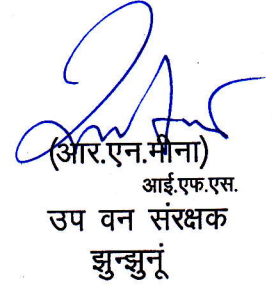 (आर.एन.मीना)
आई.एफ.एस.
उप वन संरक्षक
झुन्झुनूं